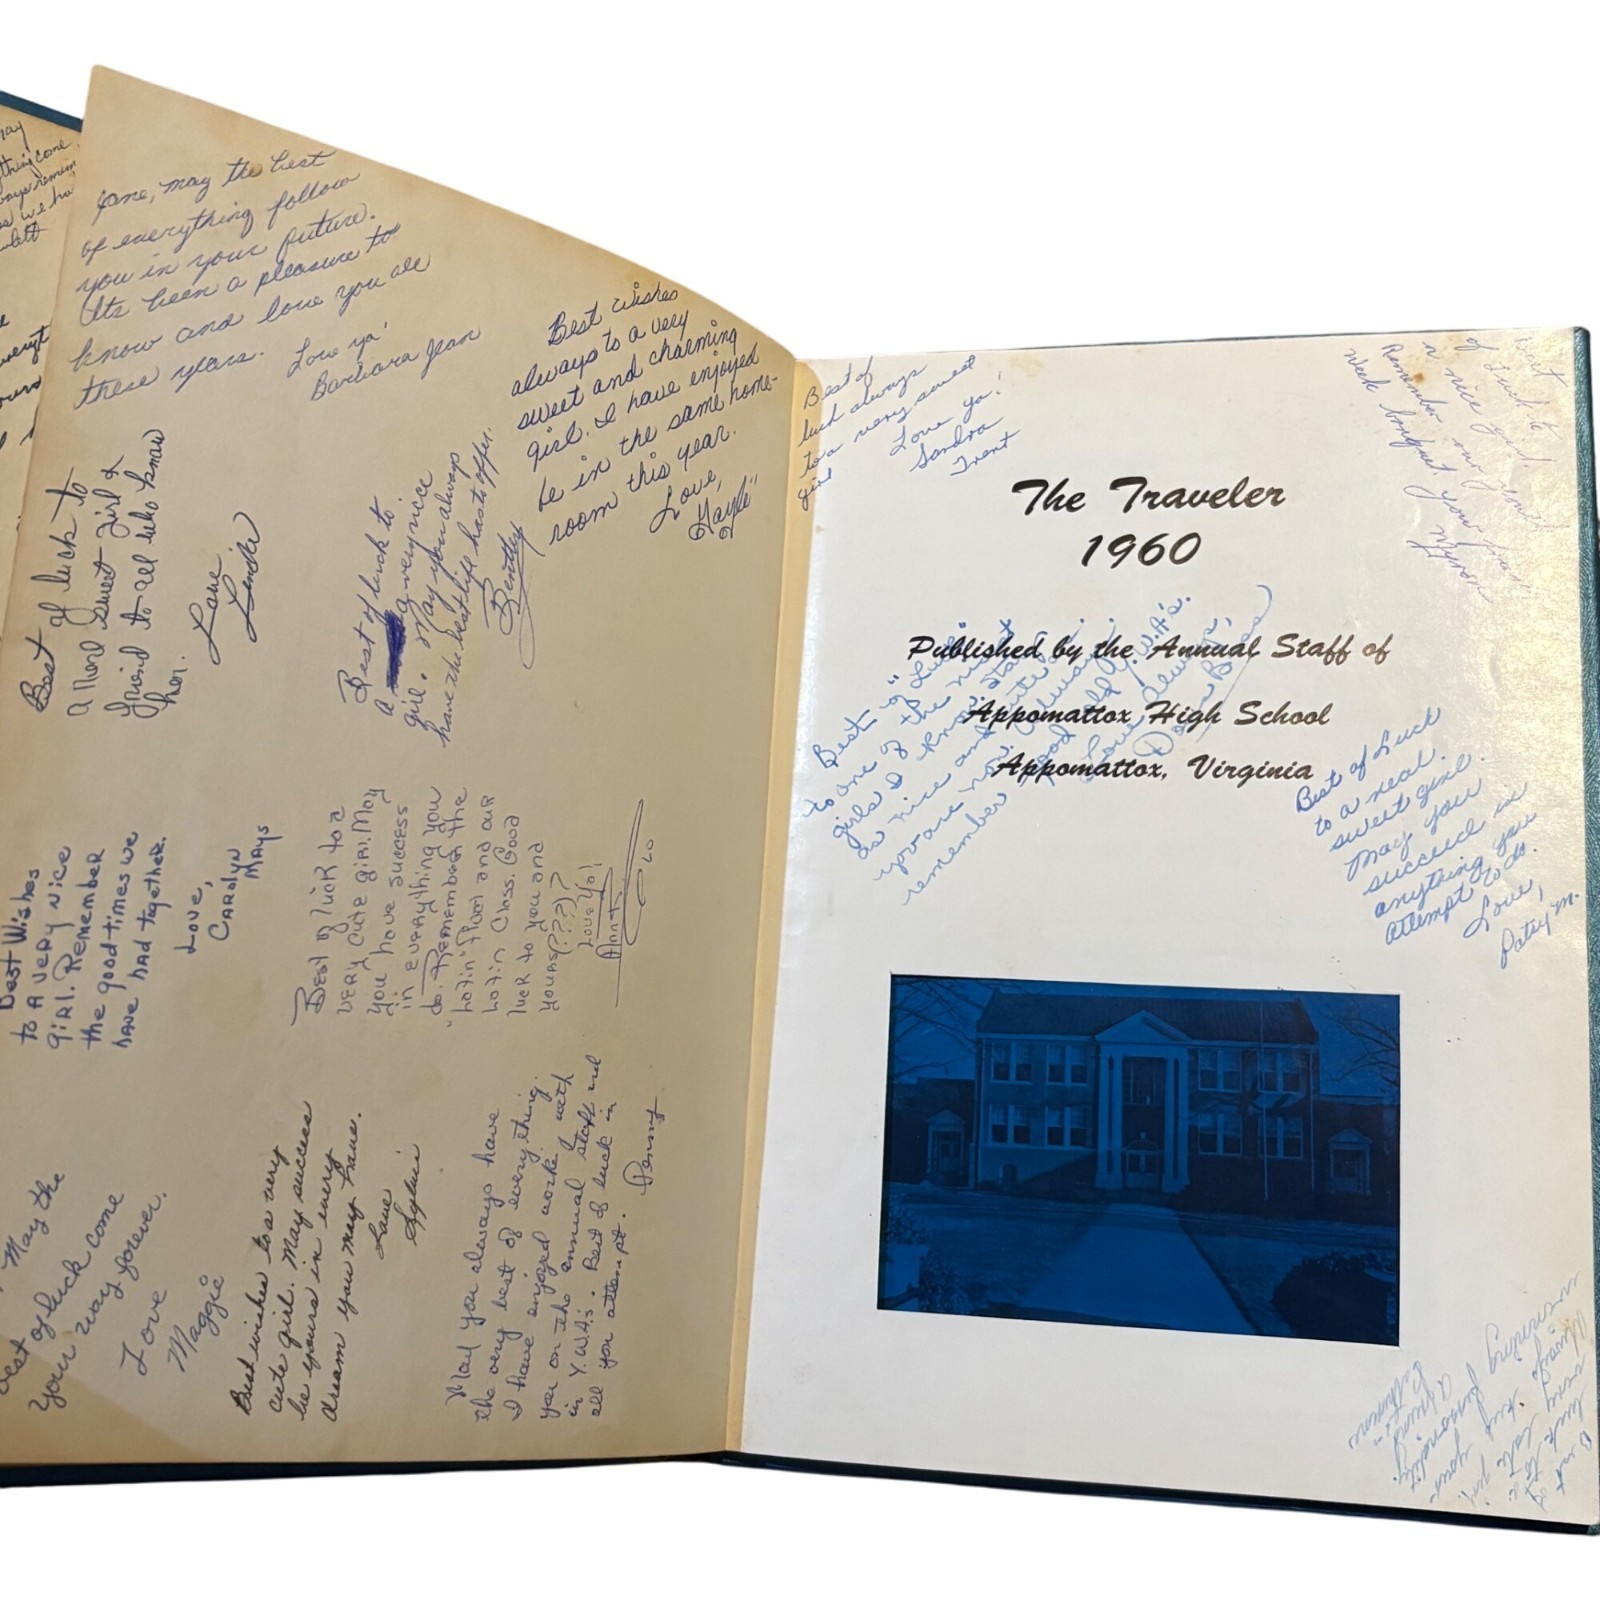 Jane, may the best
of everything follow
you in your future.
Its been a pleasure to
know and love you all
these years.
Love ya'
Barbara Jean
Best wishes
always to a very
sweet and charming
girl. I have enjoyed
be in the same home-
room this year.
Love,
"Gayle"
Best of luck to
a real sweet girl &
friend to all who know
her.
Love
Linda
Best of luck to
a very nice
girl. May you always
have the best life has to offer.
Bentley
Best Wishes
to A very Nice
Girl. Remember
the good times we
have had together.
Love,
Carolyn
Mays
Best of luck to a
very cute girl. May
you have success
in everything you
do. Remember the
"Latin" Plot and our
Latin Class. Good
luck to you and
yours(???)?
Love Ya!
May the
best of luck come
your way forever.
Love
Maggie
Best wishes to a very
cute girl. May success
be yours in every
dream you may have.
Love
Sylvia
May you always have
the very best of everything.
I have enjoyed working with
you on the annual staff and
in Y.W.A.'s. Best of luck in
all you attempt.
Penny
Best of
luck always
to a very sweet
girl
Love ya!
Sandra
Trent
Best
of Luck to
a nice girl.
Remember our
Week
Myron
The Traveler
1960
Published by the Annual Staff of
Appomattox High School
Appomattox, Virginia
Best of "Luck"
to one of the
girls I know. Stay
as nice and cute as
you are now. Always
remember good old Y.W.A's.
Love Always,
Best of Luck
to a real
sweet girl.
May you
succeed in
anything you
attempt to do.
Love,
Patsy M.
Best of
luck to a
very cute girl.
Always keep your
winning personality.